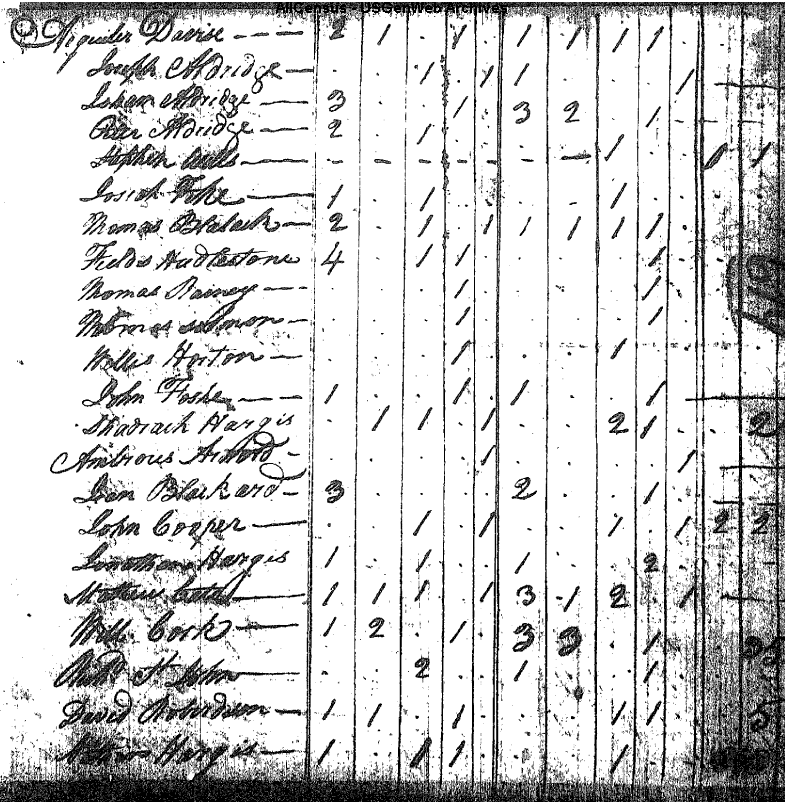 AllCensus - USGenWeb Archives
Davise 2 1 . 1 . 1 1 1 1 .
Joseph Aldridge . . 1 . 1 1 . . . 1
Isham Aldridge 3 . . 1 . 3 2 . 1 .
Peter Aldridge 2 . 1 . . . . 1 . .
Stephen - - - - - - - 1 . . 1 1
Josiah 1 . 1 . . . . 1 . .
Thomas Blalack 2 . 1 . 1 1 1 1 1 .
Fields Hudlestone 4 . 1 1 . . . . 1 .
Thomas Rainey . . . 1 . . . . 1 .
Thomas . . . 1 . . . . 1 .
Willis Horton . . . 1 . . . 1 . .
John 1 . . 1 . 1 . . 1 .
Shadrach Hargis . 1 1 . 1 . . 2 1 . 2
Ambrous . . . . 1 . . . . 1
Blackard 3 . . . . 2 . . 1 .
John Cooper . . 1 . 1 . . 1 . 1 2 2
Jonathan Hargis 1 . 1 . . 1 . . 2 .
Mathew 1 1 1 . 1 3 1 2 . 1
Will Cork 1 2 . 1 . 3 3 . 1 .
St John . . 2 . . 1 . . 1 .
David 1 1 . 1 . . . 1 1 . 5
Hargis 1 . 1 1 . . . 1 . .